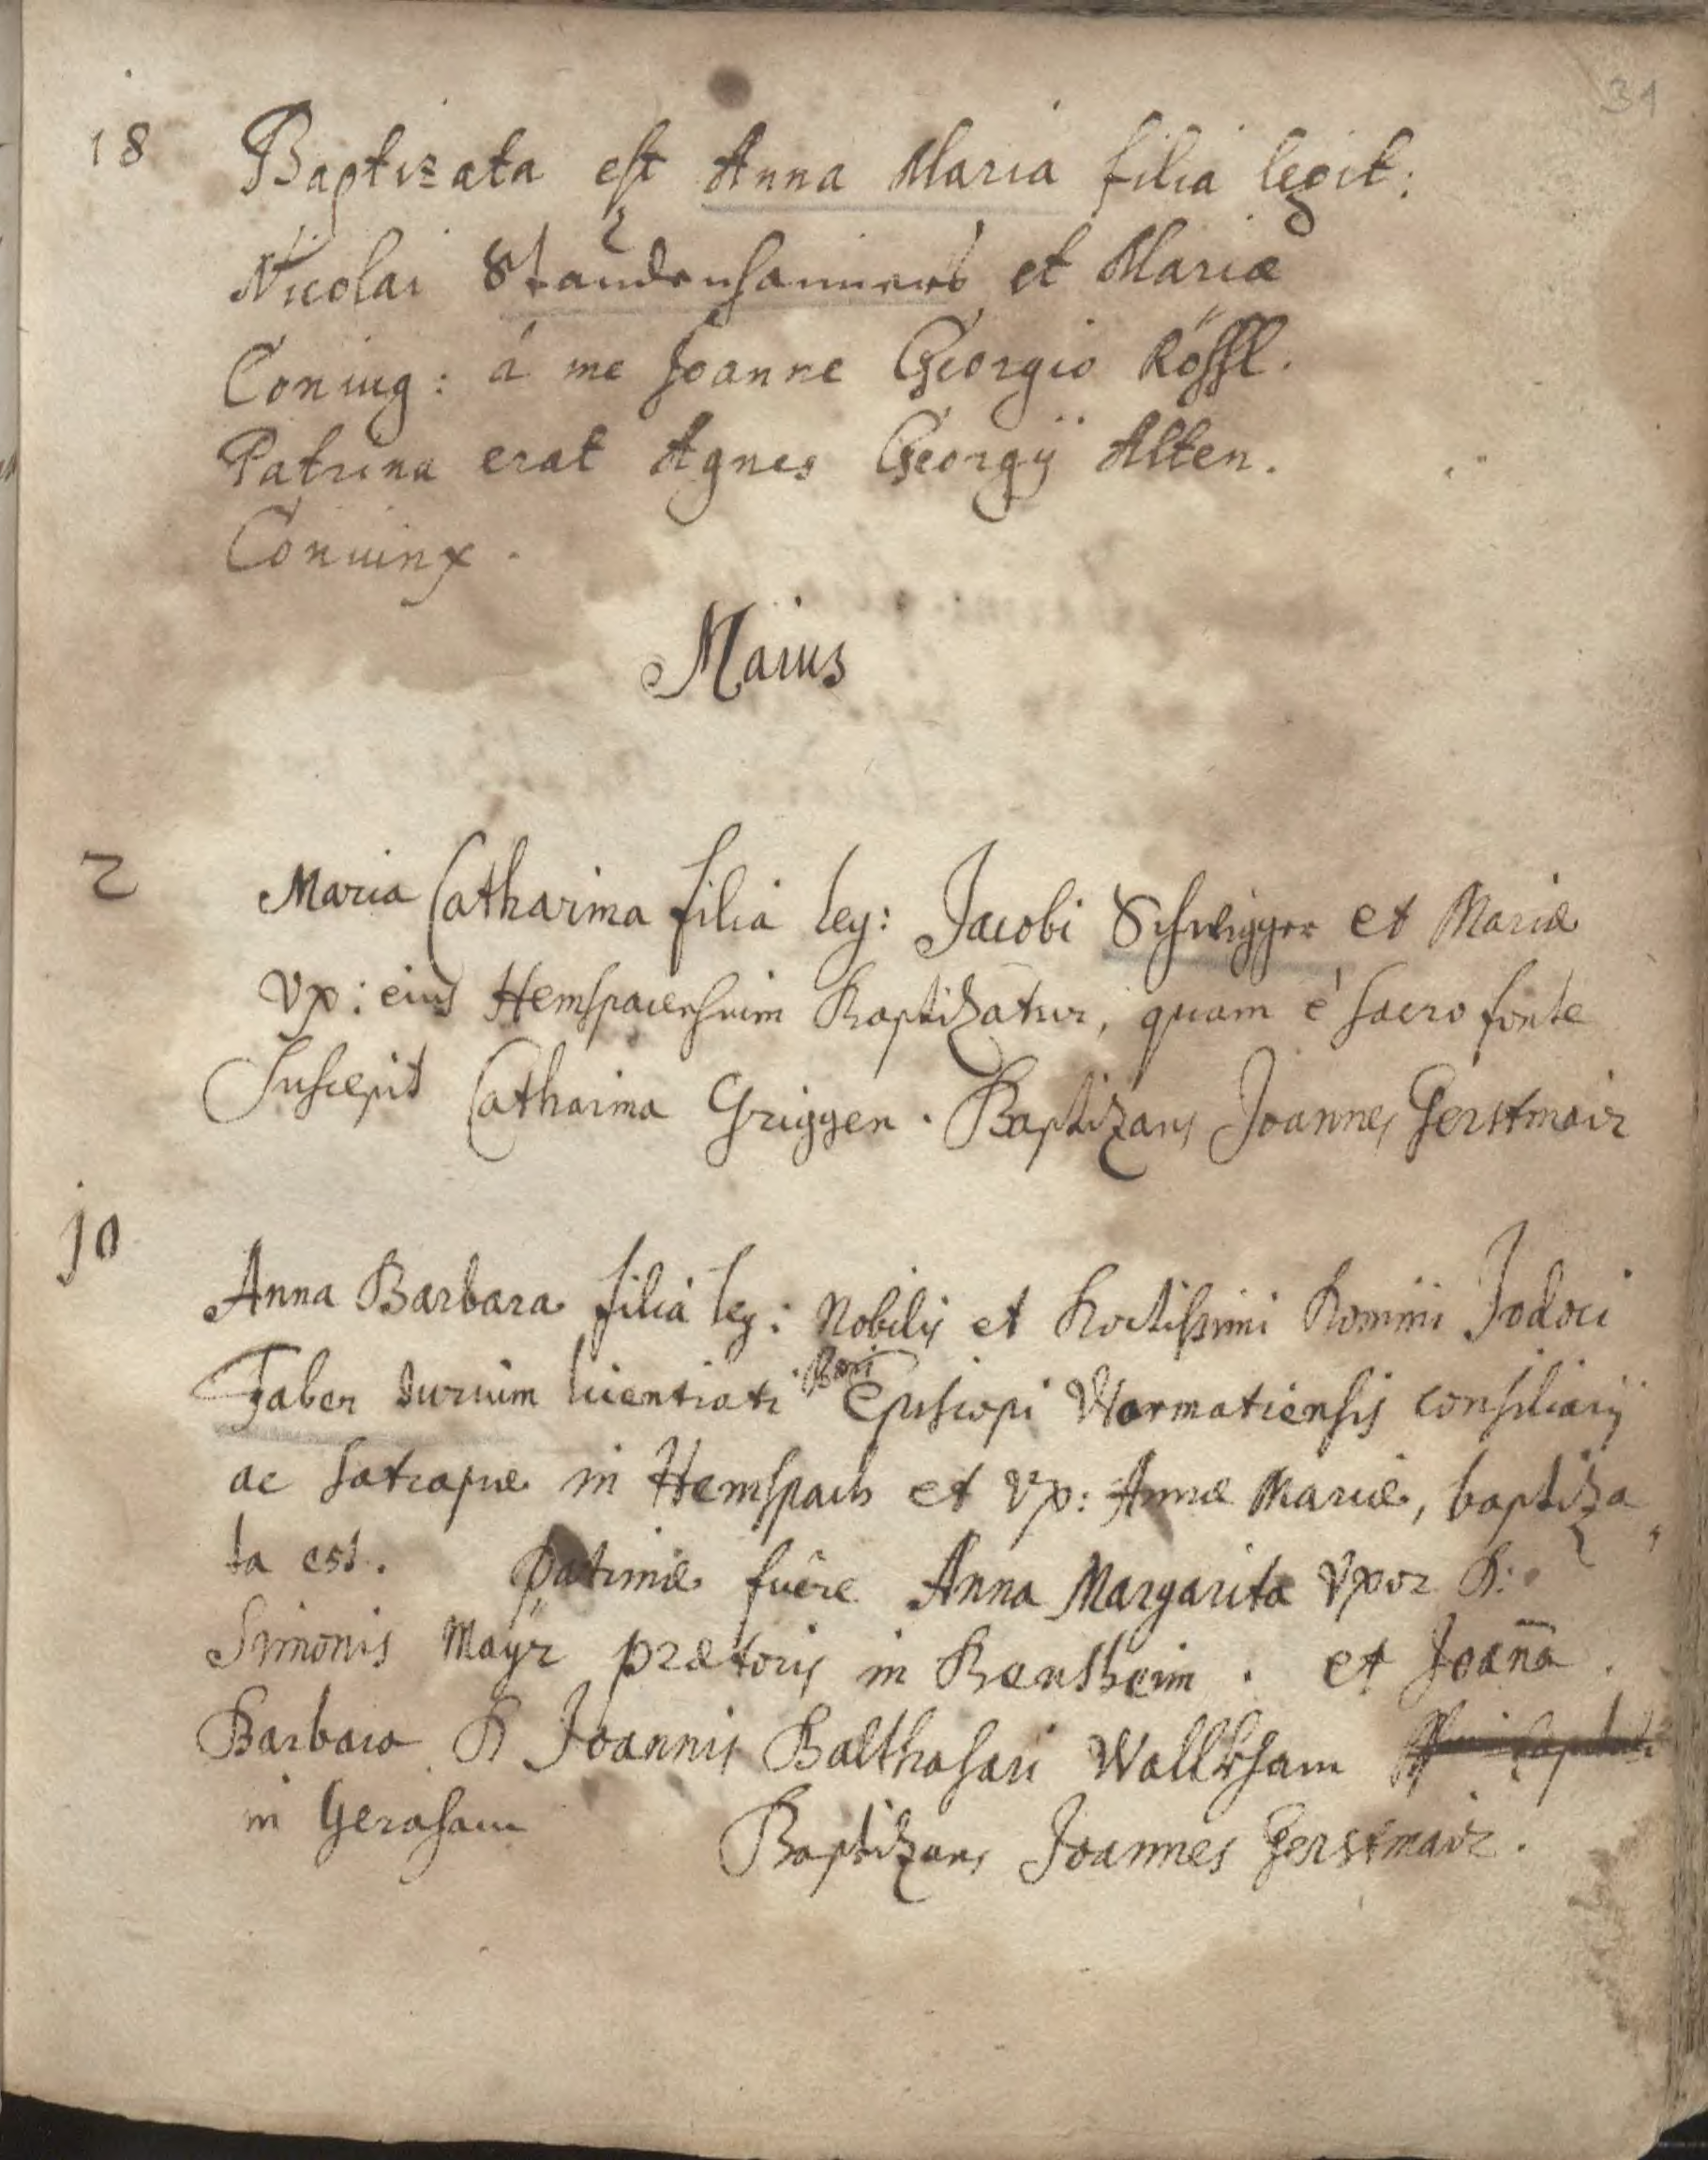 31
18 Baptizata est Anna Maria filia legit:
Nicolai Staudenhammers et Mariæ
Coniug: á me Joanne Georgio Rössl.
Patrina erat Agnes Georgÿ Alten.
Coniunx.
Maius
2 Maria Catharina filia leg: Jacobi Schweigger et Mariæ
Vx: eius Hemspacensium Baptizatur, quam è sacro fonte
Suscepit Catharina Griggen. Baptizans Joannes Gerstmair
10 Anna Barbara filia leg: Nobilis et Doctissimi Domini Jodoci
Faber Iurium licentiati Episcopi Wormatiensis consiliarÿ
ac satrapæ in Hemspach et Vx: Annæ Mariæ, baptiza
ta est. Patrinæ fuêre Anna Margarita Vxor D:
Simonis Mayr prætoris in Bensheim. et Joana
Barbara D Joannis Balthasari
in Baptizans Joannes Gerstmair.